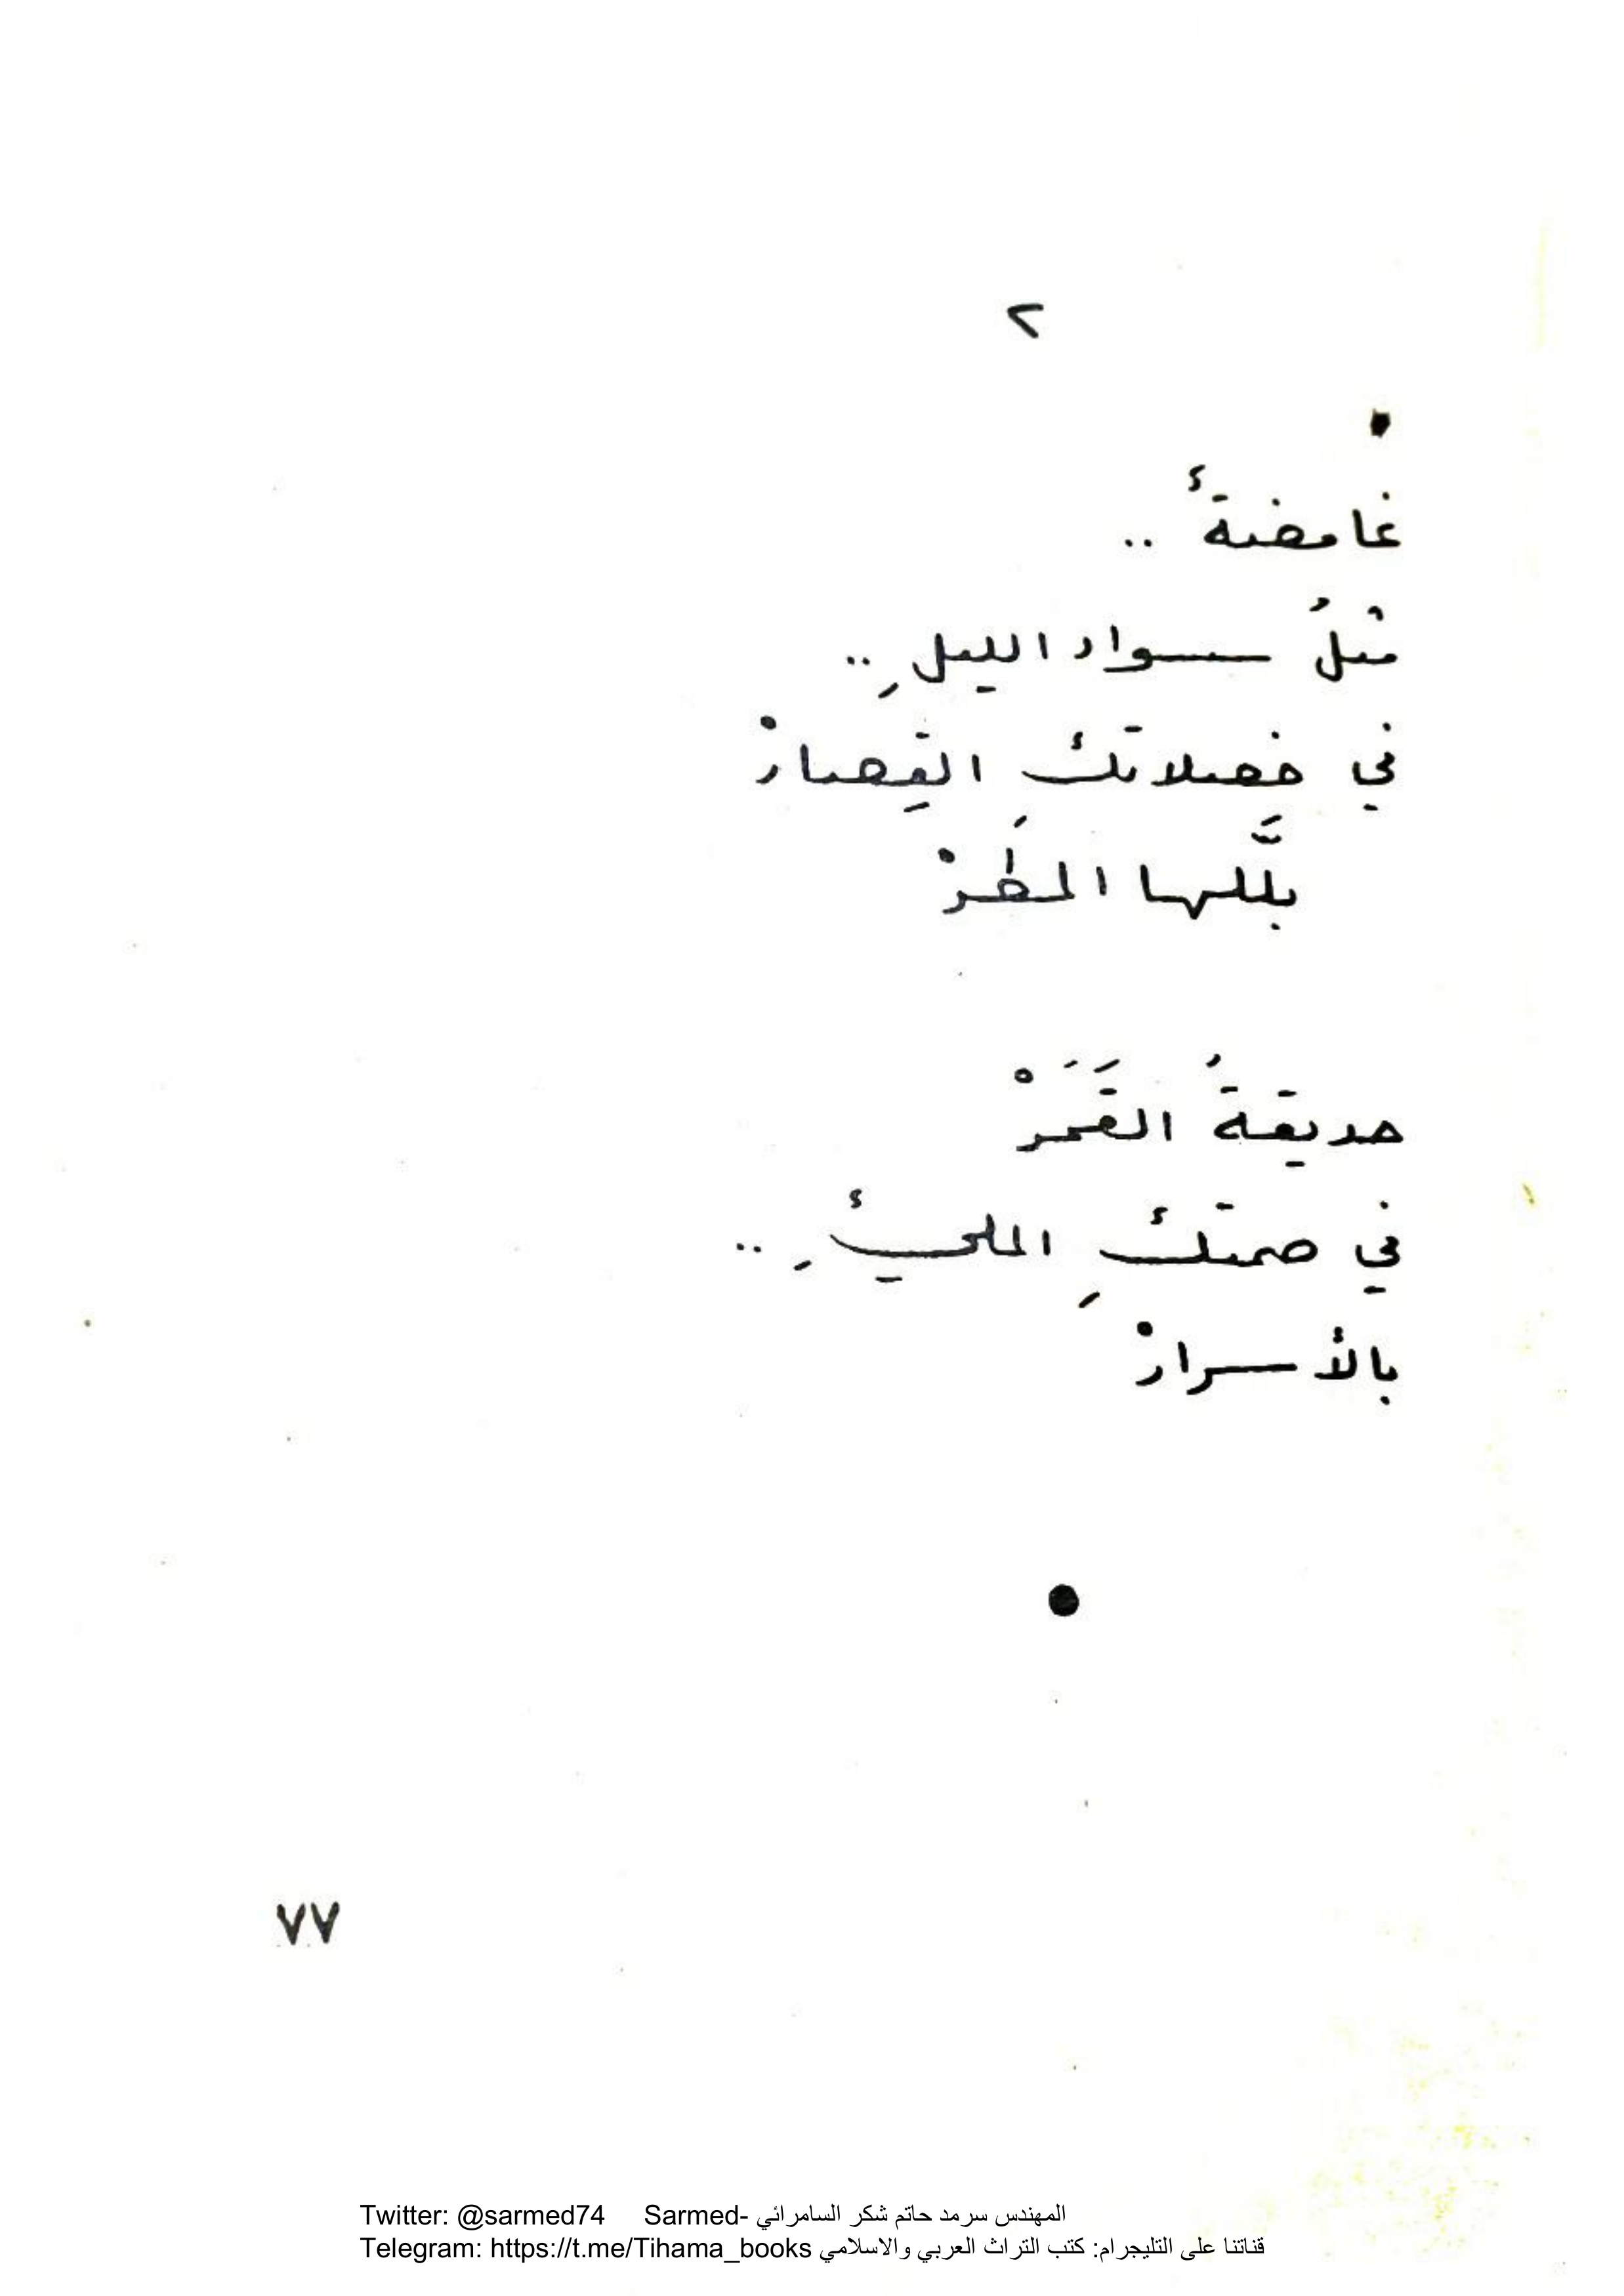 ٢
غامضةٌ ..
مثلُ سواد الليلِ ..
في خصلاتك القِصارْ
بلَّلها المطَرْ
حديقةُ القَمَرْ
في صمتكِ المليءِ ..
بالأسرارْ
٧٧
Twitter: @sarmed74 Sarmed- المهندس سرمد حاتم شكر السامرائي
Telegram: https://t.me/Tihama_books قناتنا على التليجرام: كتب التراث العربي والاسلامي